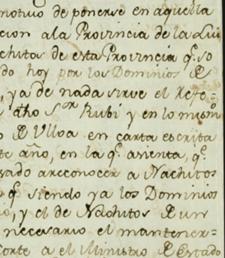 motivo de ponerse en aquella
cion a la Provincia de la Lui
chitos de esta Provincia q.e so
do hoy por los Dominios de
, ya de nada sirve el Refo
dho S.or Rubí y en lo mism
D Ulloa en carta escrita
te año, en la q.e asienta, q.e
sado a reconocer a Nachitos
q.e siendo ya los Dominios
o, y el de Nachitos de un
necesario el mantener
Corte a el Ministro de Estado